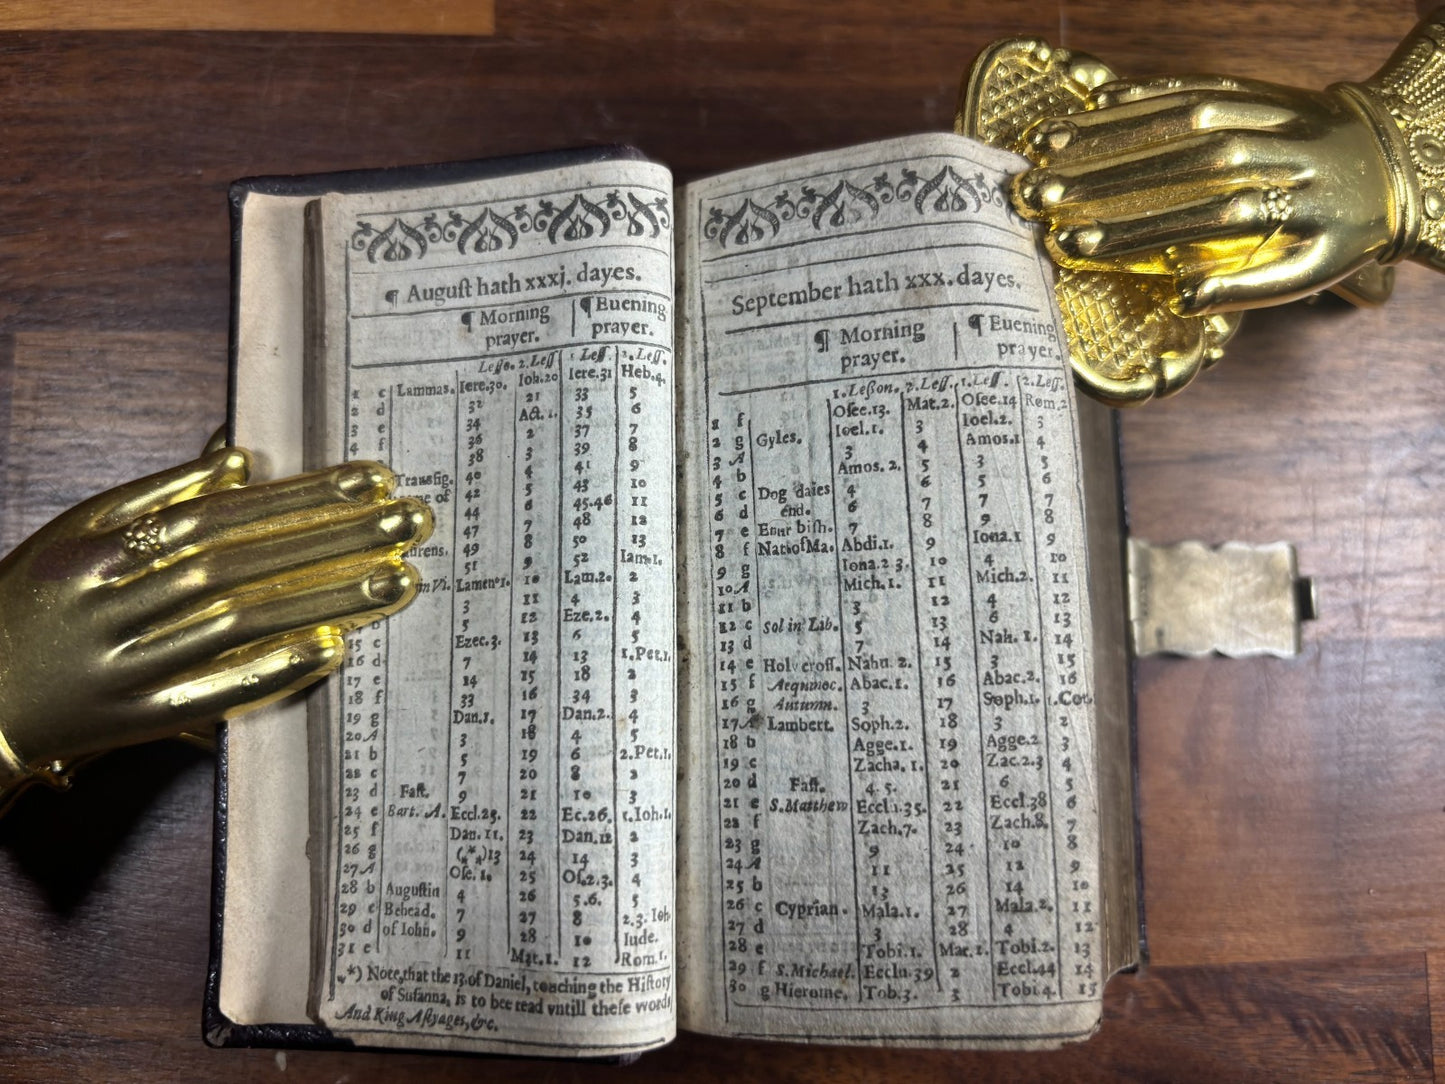 ¶ Auguſt hath xxxj. dayes.
¶ Morning prayer. ¶ Euening prayer.
Leſſo. 2.Leſſ 1 Leſſ. 2.Leſſ.
1 c Lammas. Iere.30. Ioh.20 Iere.31 Heb.4.
2 d 32 21 33 5
3 e 34 Act.1. 35 6
4 f 36 2 37 7
38 3 39 8
Transfig. 40 4 41 9
of 42 5 43 10
44 6 45.46 11
47 7 48 12
urens. 49 8 50 13
51 9 52 Iam.1.
in Vi. Lamen.1. 10 Lam.2. 2
3 11 4 3
b 5 12 Eze.2. 4
15 c Ezec.3. 13 6 5
16 d 7 14 13 1.Pet.1.
17 e 14 15 18 2
18 f 33 16 34 3
19 g Dan.1. 17 Dan.2. 4
20 A 3 18 4 5
21 b 5 19 6 2.Pet.1.
22 c 7 20 8 2
23 d Faſt. 9 21 10 3
24 e Bart. A. Eccl.25. 22 Ec.26. 1.Ioh.1.
25 f Dan.11. 23 Dan.12 2
26 g (***)13 24 14 3
27 A Oſe.1. 25 Oſ.2.3. 4
28 b Auguſtin 4 26 5.6. 5
29 c Behead. 7 27 8 2.3. Ioh.
30 d of Iohn. 9 28 10 Iude.
31 e 11 Mat.1. 12 Rom.1.
*) Note, that the 13. of Daniel, touching the Hiſtory
of Suſanna, is to bee read vntill theſe words
And King Aſtyages, &c.
September hath xxx. dayes.
¶ Morning prayer. ¶ Euening prayer.
1.Leſſon. 2.Leſſ. 1.Leſſ. 2.Leſſ.
1 f Oſee.13. Mat.2. Oſee.14 Rom.2
2 g Gyles. Ioel.1. 3 Ioel.2. 3
3 A 3 4 Amos.1 4
4 b Amos.2. 5 3 5
5 c Dog daies 4 6 5 6
6 d end. 6 7 7 7
7 e Enur biſh. 7 8 9 8
8 f Nat.ofMa. Abdi.1. 9 Iona.1. 9
9 g Iona.2 3. 10 4 10
10 A Mich.1. 11 Mich.2. 11
11 b 3 12 4 12
12 c Sol in Lib. 5 13 6 13
13 d 7 14 Nah.1. 14
14 e Holycroſſ. Nahu.2. 15 3 15
15 f Aequinoc. Abac.1. 16 Abac.2. 16
16 g Autumn. 3 17 Soph.1. 1.Cor.
17 A Lambert. Soph.2. 18 3 2
18 b Agge.1. 19 Agge.2 3
19 c Zacha.1. 20 Zac.2.3 4
20 d Faſt. 4.5. 21 6 5
21 e S.Matthew Eccl.35. 22 Eccl.38 6
22 f Zach.7. 23 Zach.8. 7
23 g 9 24 10 8
24 A 11 25 12 9
25 b 13 26 14 10
26 c Cyprian. Mala.1. 27 Mala.2. 11
27 d 3 28 4 12
28 e Tobi.1. Mar.1. Tobi.2. 13
29 f S.Michael. Ecclu.39 2 Eccl.44 14
30 g Hierome. Tob.3. 3 Tobi 4. 15